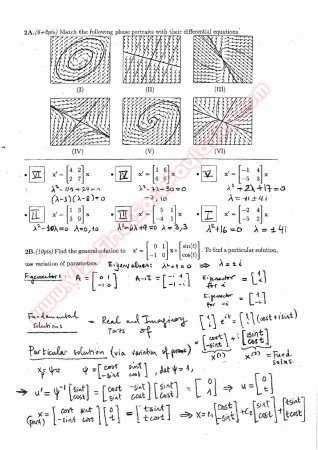 2A. (5+5pts) Match the following phase portraits with their differential equations.
(I) (II) (III)
(IV) (V) (VI)
• VI x' = [4 2; 2 7] x • IV x' = [1 6; 6] x • V x' = [-1 4; -5 3] x
λ² - 11λ + 24 = 0 λ² - 7λ - 30 = 0 λ² + 2λ + 17 = 0
(λ-3)(λ-8) = 0 -3, 10 λ = -1 ± 4i
• II x' = [1 3; 3 9] x • III x' = [5 1; -4 1] x • I x' = [-2 4; -5 2] x
λ² - 10λ = 0 λ = 0, 10 λ² - 6λ + 9 = 0 λ = 3, 3 λ² + 16 = 0 λ = ± 4i
2B. (10pts) Find the general solution to x' = [0 1; -1 0] x + [sin(t); cos(t)]. To find a particular solution,
use variation of parameters. Eigenvalues: λ² + 1 = 0 ⇒ λ = ± i
Eigenvectors: A = [0 1; -1 0] Eigenvector for i = [1; i]
Eigenvector for -i =
Fundamental Solutions = Real and Imaginary Parts of [1; i] e^{it} = [1; i] (cost + i sint)
= [cost; -sint] + i [sint; cost]
Particular solution (via variation of params) x(1) x(2) = Fund. solns.
ψ = [cost sint; -sint cost], det ψ = 1,
⇒ u' = ψ⁻¹ [sint; cost] = [cost -sint; sint cost] [sint; cost] = [0; 1] ⇒ u = [0; t]
x = [cost sint; -sint cost] [0; t] = [t sint; t cost] ⇒ x = c₁ [cost; -sint] + c₂ [sint; cost] + [t sint; t cost]
(part)